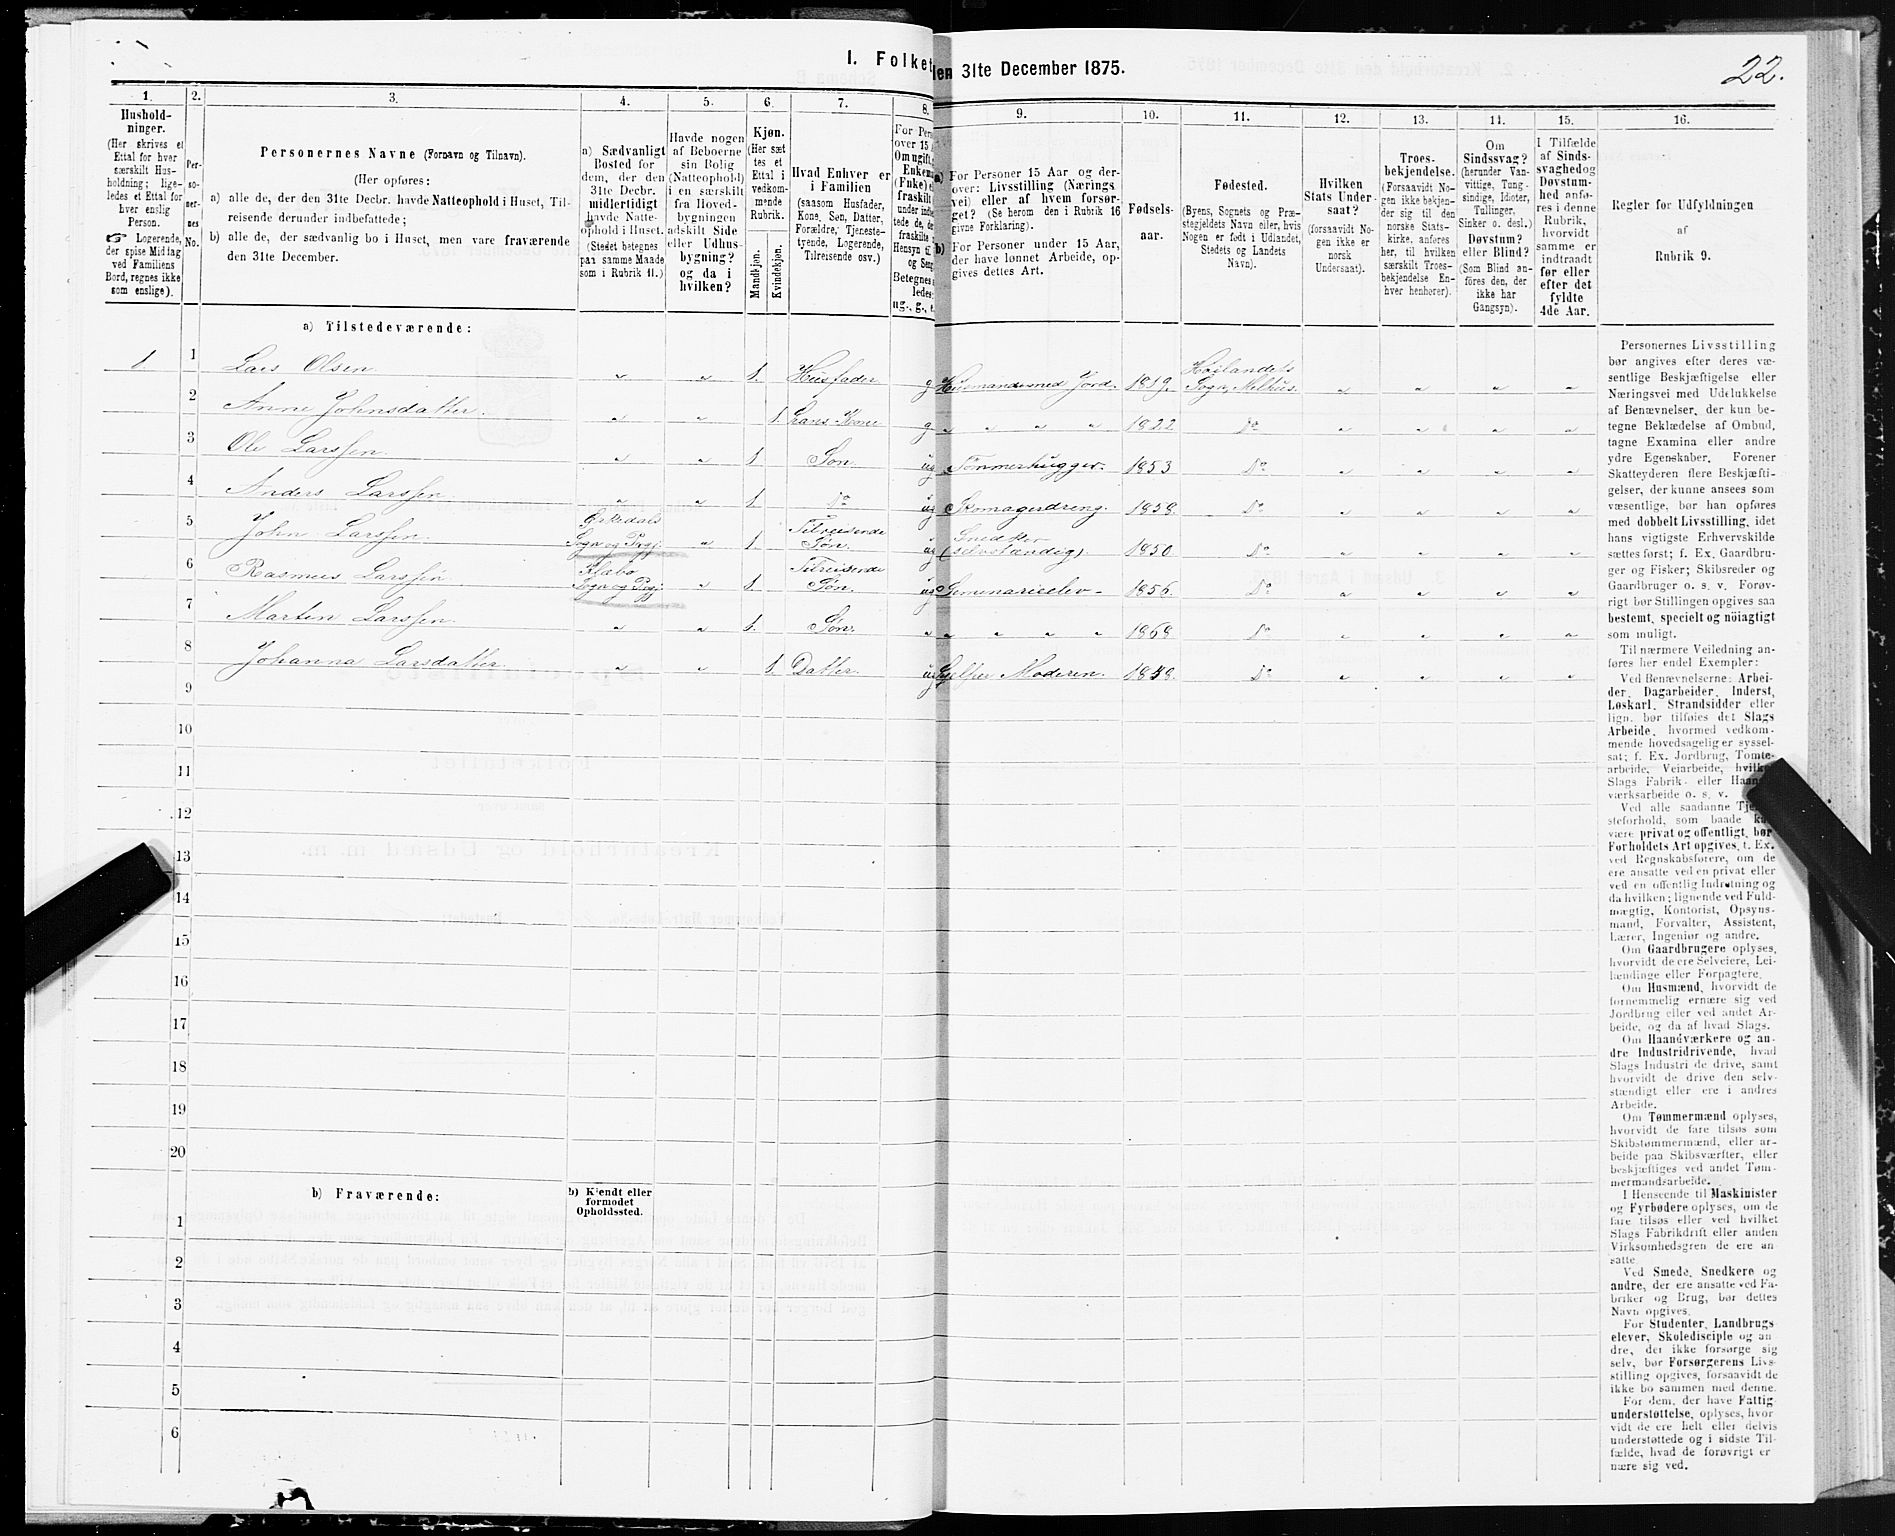 I. Folket
den 31te December 1875.
22.
1.
2.
3.
4.
5.
6.
7.
8.
9.
10.
11.
12.
13.
11.
15.
16.
Hushold-
ninger.
(Her skrives et
Ettal for hver
særskilt Hus-
holdning; lige-
ledes et Ettal for
hver enslig
Person.
☞ Logerende,
der spise Middag
ved Familiens
Bord, regnes ikke
som enslige).
Per-
so-
ner-
nes
No.
Personernes Navne (Fornavn og Tilnavn).
(Her opføres:
a) alle de, der den 31te Decbr. havde Natteophold i Huset, Til-
reisende derunder indbefattede;
b) alle de, der sædvanlig bo i Huset, men vare fraværende
den 31te December.
a) Sædvanligt
Bosted for
dem, der den
31te Decbr.
midlertidigt
havde Natte-
ophold i Huset.
(Stedet betegnes
paa samme Maade
som i Rubrik 11.)
Havde nogen
af Beboerne
sin Bolig
(Natteophold)
i en særskilt
fra Hoved-
bygningen
adskilt Side
eller Udhus-
bygning?
og da i
hvilken?
Kjøn.
(Her sæt
tes et
Ettal i
vedkom-
mende
Rubrik.
Mandkjøn.
Kvindekjøn.
Hvad Enhver er
i Familien
(saasom Husfader,
Kone, Søn, Datter,
Forældre, Tjeneste-
tyende, Logerende,
Tilreisende osv.)
For Pers
over 15 A
Om ugift,
Enkema
(Enke) e
fraskilt
under indbe
tede de, de
fraskilte
Hensyn til
og Seng
Betegnes
ledes:
ug., g., e.
a)
For Personer 15 Aar og der-
over: Livsstilling (Nærings
vei) eller af hvem forsør-
get? (Se herom den i Rubrik 16
givne Forklaring).
b)
For Personer under 15 Aar,
der have lønnet Arbeide, op-
gives dettes Art.
Fødsels-
aar.
Fødested.
(Byens, Sognets og Præ-
stegjeldets Navn eller, hvis
Nogen er født i Udlandet,
Stedets og Landets
Navn).
Hvilken
Stats Under-
saat?
(forsaavidt No-
gen ikke er
norsk
Undersaat).
Troes-
bekjendelse.
(Forsaavidt No-
gen ikke bekjen-
der sig til den
norske Stats-
kirke, anføres
her, til hvilken
særskilt Troes-
bekjendelse En-
hver henhører).
Om
Sindssvag?
(herunder Van-
vittige, Tung-
sindige, Idioter,
Tullinger,
Sinker o. desl.)
Døvstum?
eller Blind?
(Som Blind an-
føres den, der
ikke har
Gangsyn).
I Tilfælde
af Sinds-
svaghed og
Døvstum-
hed anfø-
res i denne
Rubrik,
hvorvidt
samme er
indtraadt
før eller
efter det
fyldte
4de Aar.
Regler for Udfyldningen
af
Rubrik 9.
a) Tilstedeværende:
1. 1 Lars Olsen " " 1. Husfader g Husmand med Jord. 1819. Høilandets Sogn, Melhus. " " " "
2 Anne Johnsdatter. " " 1. hans Kone g " " " " 1822 Do " " " "
3 Ole Larssen. " " 1. Søn. ug Tømmerhugger. 1853 Do " " " "
4 Anders Larssen " " 1. Do ug Skomagerdreng. 1858. Do " " " "
5 John Larssen. Sogn og Prgj. " 1. Tilreisende Søn. ug Snedker (selvstændig). 1850 Do " " " "
6 Rasmus Larssen Klæbo Sogn og Prgj. " 1. Tilreisende Søn. ug Seminarieelev 1856. Do " " " "
7 Marten Larssen. " " 1. Søn. " " " " " 1868 Do " " " "
8 Johanna Larsdatter. " " 1. Datter. ug Hjelper Moderen. Do " " " "
9
10
11
12
13
14
15
16
17
18
19
20
b) Fraværende:
b) Kjendt eller
formodet
Opholdssted.
1
2
3
4
5
6
Personernes Livsstilling
bør angives efter deres væ-
sentlige Beskjæftigelse eller
Næringsvei med Udelukkelse
af Benævnelser, der kun be-
tegne Beklædelse af Ombud,
tagne Examina eller andre
ydre Egenskaber. Forener
Skatteyderen flere Beskjæfti-
gelser, der kunne ansees som
væsentlige, bør han opføres
med dobbelt Livsstilling, idet
hans vigtigste Erhvervskilde
sættes først; f. Ex. Gaardbru-
ger og Fisker; Skibsreder og
Gaardbruger o. s. v. Forøv-
rigt bør Stillingen opgives saa
bestemt, specielt og nøiagtigt
som muligt.
Til nærmere Veiledning an-
føres her endel Exempler:
Ved Benævnelserne: Arbei-
der, Dagarbeider, Inderst,
Løskarl, Strandsidder eller
lign. bør tilføies det Slags
Arbeide, hvormed vedkom-
mende hovedsagelig er syssel-
sat; f. Ex. Jordbrug, Tomte-
arbeide, Veiarbeide, hvilket
Slags Fabrik- eller Haand-
værksarbeide o. s. v.
Ved alle saadanne Tjene-
steforhold, som baade kan
være privat og offentligt, bør
Forholdets Art opgives, t. Ex.
ved Regnskabsførere, om de
ere ansatte ved en privat eller
ved en offentlig Indretning og
da hvilken; lignende ved Fuld-
mægtig, Kontorist, Opsyns-
mand, Forvalter, Assistent,
Lærer, Ingeniør og andre.
Om Gaardbrugere oplyses,
hvorvidt de ere Selveiere, Lei-
lændinge eller Forpagtere.
Om Husmænd, hvorvidt de
fornemmelig ernære sig ved
Jordbrug eller ved andet Ar-
beide, og da af hvad Slags.
Om Haandværkere og an-
dre Industridrivende, hvad
Slags Industri de drive, samt
hvorvidt de drive den selv-
stændigt eller ere i andres
Arbeide.
Om Tømmermænd oplyses,
hvorvidt de fare tilsøs som
Skibstømmermænd, eller ar-
beide paa Skibsværfter, eller
beskjæftiges ved andet Tøm-
mermandsarbeide.
I Henseende til Maskinister
og Fyrbødere oplyses, om de
fare tilsøs eller ved hvilket
Slags Fabrikdrift eller anden
Virksomhedsgren de ere an
satte.
Ved Smede, Snedkere og
andre, der ere ansatte ved Fa-
briker og Brug, bør dettes
Navn opgives.
For Studenter, Landbrugs-
elever, Skoledisciple og an
dre, der ikke forsørge sig
selv, bør Forsørgerens Livs-
stilling opgives, forsaavidt de
ikke bo sammen med denne.
For dem, der have Fattig-
understøttelse, oplyses, hvor
vidt de ere helt eller delvis
understøttede og i sidste Til-
fælde, hvad de forøvrigt er
nære sig ved.